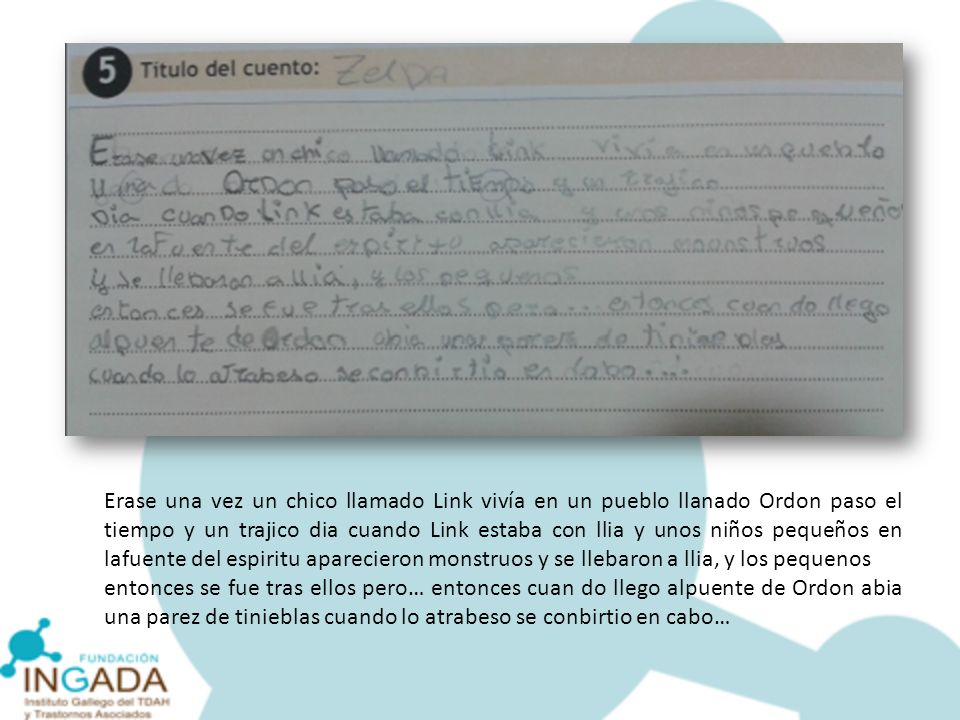 5 Título del cuento: Zelda
Erase una vez un chico llamado Link vivía en un pueblo
llanado Ordon paso el tiempo y un trajico
dia cuando Link estaba con llia y unos niños pequeños
en lafuente del espiritu aparecieron monstruos
y se llebaron a llia, y los pequenos
entonces se fue tras ellos pero... entonces cuan do llego
alpuente de Ordon abia una parez de tinieblas
cuando lo atrabeso se conbirtio en cabo...
Erase una vez un chico llamado Link vivía en un pueblo llanado Ordon paso el
tiempo y un trajico dia cuando Link estaba con llia y unos niños pequeños en
lafuente del espiritu aparecieron monstruos y se llebaron a llia, y los pequenos
entonces se fue tras ellos pero… entonces cuan do llego alpuente de Ordon abia
una parez de tinieblas cuando lo atrabeso se conbirtio en cabo…
FUNDACIÓN
INGADA
Instituto Gallego del TDAH
y Trastornos Asociados